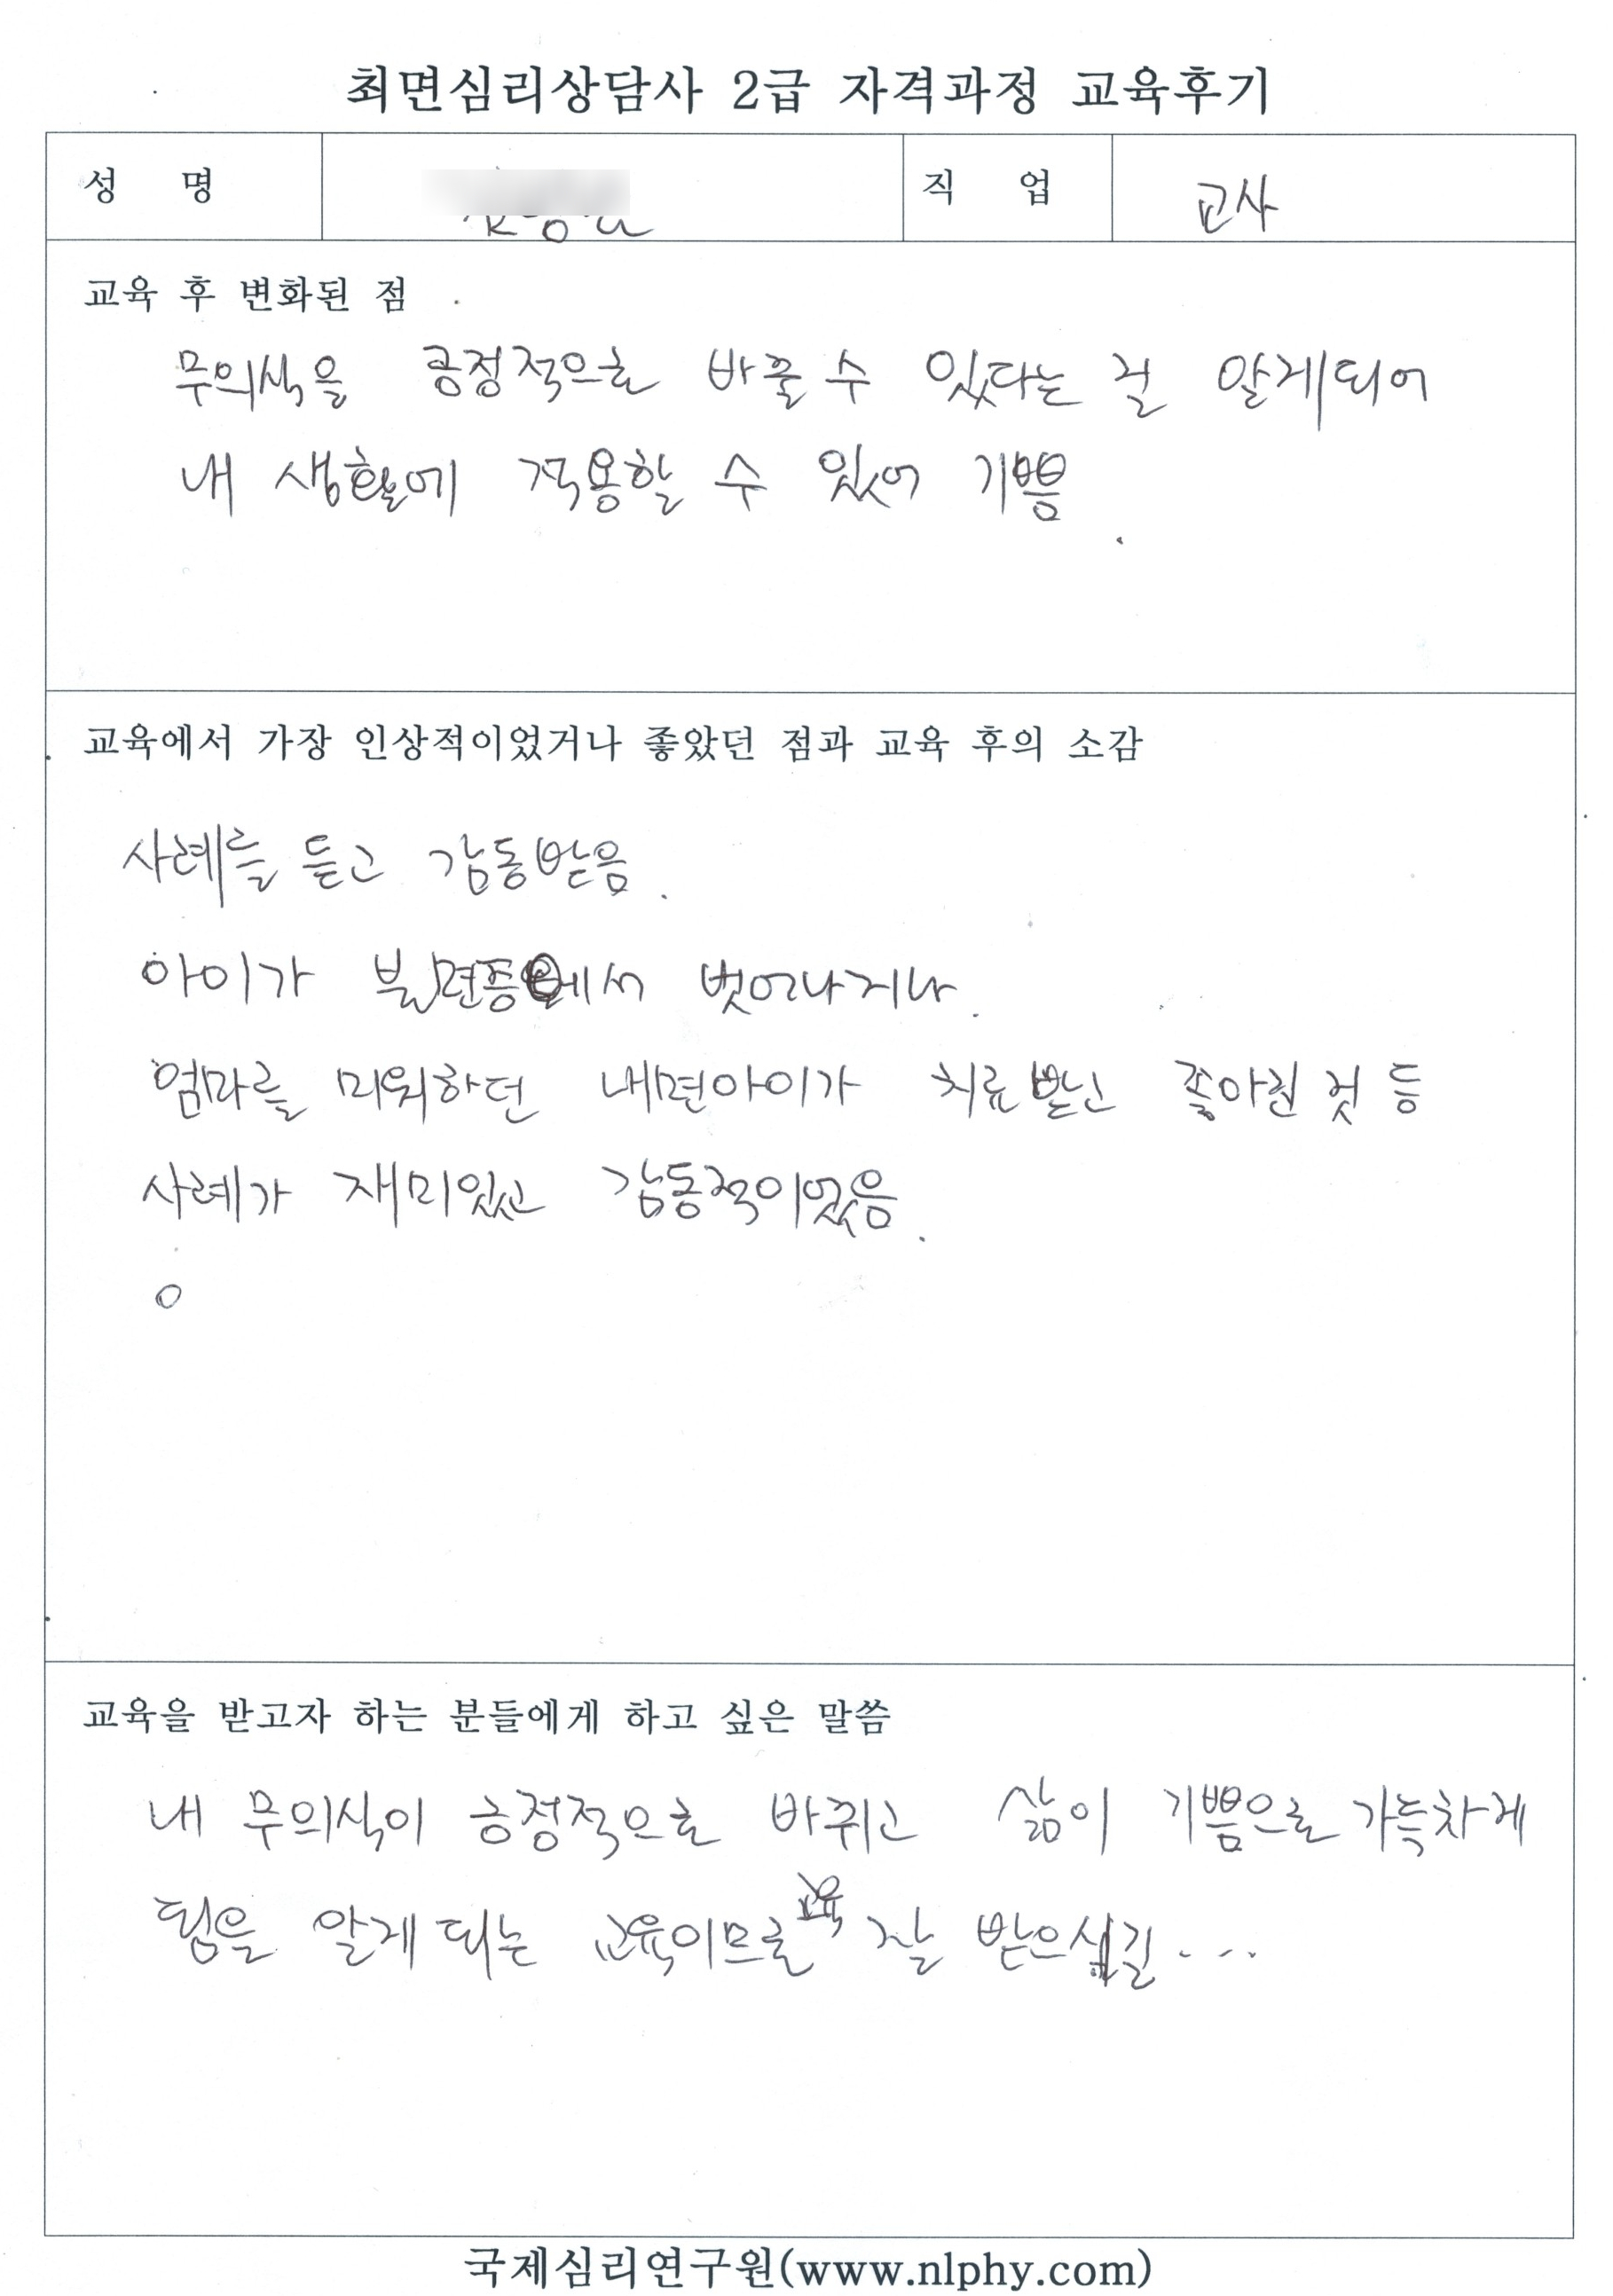 최면심리상담사 2급 자격과정 교육후기
성 명 직 업 교사
교육 후 변화된 점
무의식을 긍정적으로 바꿀 수 있다는 걸 알게되어
내 생활에 적용할 수 있어 기쁨
교육에서 가장 인상적이었거나 좋았던 점과 교육 후의 소감
사례를 듣고 감동받음.
아이가 불면증에서 벗어나거나.
엄마를 미워하던 내면아이가 치료받고 좋아진 것 등
사례가 재미있고 감동적이었음.
교육을 받고자 하는 분들에게 하고 싶은 말씀
내 무의식이 긍정적으로 바뀌고 삶이 기쁨으로 가득차게
됨을 알게 되는 교육이므로 교육 잘 받으시길....
국제심리연구원(www.nlphy.com)